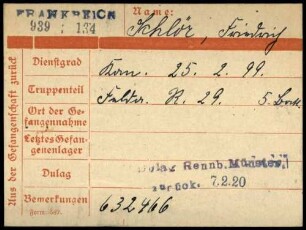 FRANKREICH
939 : 134
Name:
Schlör, Friedrich
Aus der Gefangenschaft zurück
Dienstgrad
Kan. 25. 2. 99.
Truppenteil
Felda. R. 29. 5. Batt.
Ort der Ge-
fangennahme
Letztes Gefan-
genenlager
Dulag
Dulag Rennb. Münster
zurück. 7.2.20
Bemerkungen
632466